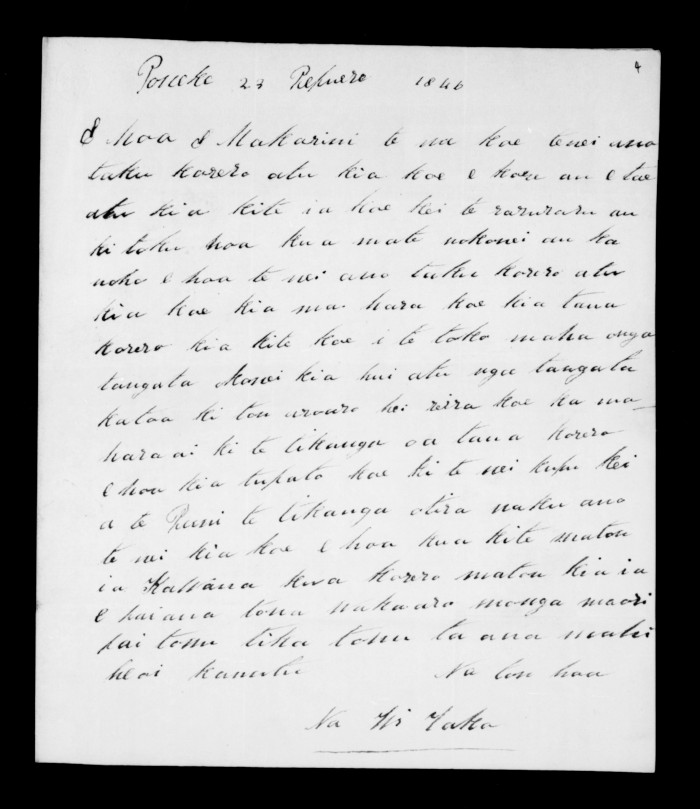 4
Poneke 23 Pepuere 1846
E hoa E Makarini te na koe tenei ano
taku korero atu kia koe e kore au e tae
atu kia kite ia koe kei te raruraru au
ki toku hoa kua mate nokonei au ka
noho e hoa te nei ano taku korero atu
kia koe kia ma hara koe kia tana
korero kia kite koe i te toko maha onga
tangata kia hui atu nga tangata
katoa ki tou aroaro hei reira koe ka ma-
hara ai ki te tikanga oa tana korero
e hoa kia tupato koe ki te nei kupu kei
a te te tikanga otira naku ano
te nei kia koe e hoa kua kite matou
ia kua korero matou kia ia
e pai ana tona wakaaro monga maori
pai tonu tika tonu ta ana mahi
heoi kamutu Na tou hoa
Na Wi Tako